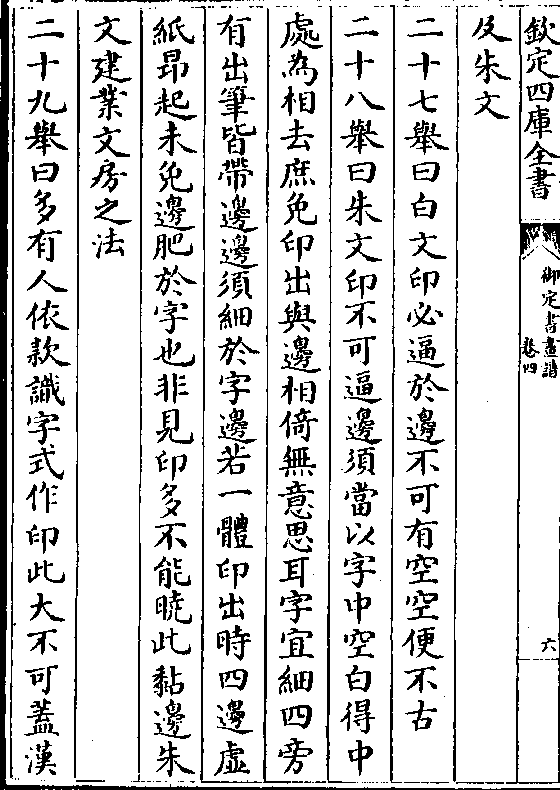 欽定四庫全書
御定書畫譜
卷四
六
及朱文
二十七舉曰白文印必逼於邊不可有空空便不古
二十八舉曰朱文印不可逼邊須當以字中空白得中
處為相去庶免印出與邊相倚無意思耳字宜細四旁
有出筆皆帶邊邊須細於字邊若一體印出時四邊虛
紙昂起未免邊肥於字也非見印多不能曉此黏邊朱
文建業文房之法
二十九舉曰多有人依款識字式作印此大不可蓋漢